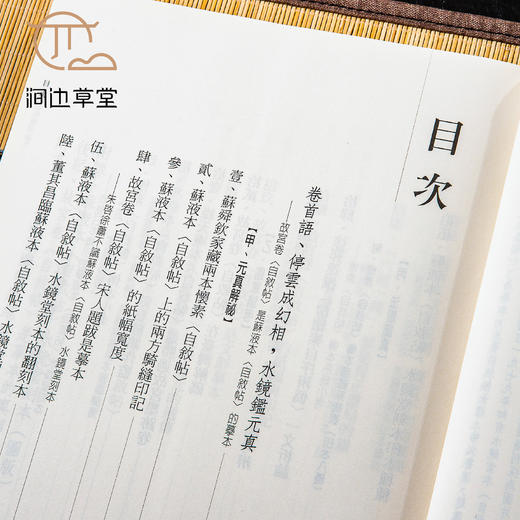 涧边草堂
目次
卷首語、停雲成幻相，水鏡鑑元真
——故宮卷〈自敘帖〉是蘇液本〈自敘帖〉的摹本
【甲、元真解祕】
壹、蘇舜欽家藏兩本懷素〈自敘帖〉
貳、蘇液本〈自敘帖〉上的兩方騎縫印記
參、蘇液本〈自敘帖〉的紙幅寬度
肆、故宮卷〈自敘帖〉宋人題跋是摹本
——朱笞徐蕭不識蘇液本〈自敘帖〉水鏡堂刻本
伍、蘇液本〈自敘帖〉水鏡堂刻本的翻刻本
陸、董其昌臨蘇液本〈自敘帖〉水鏡堂